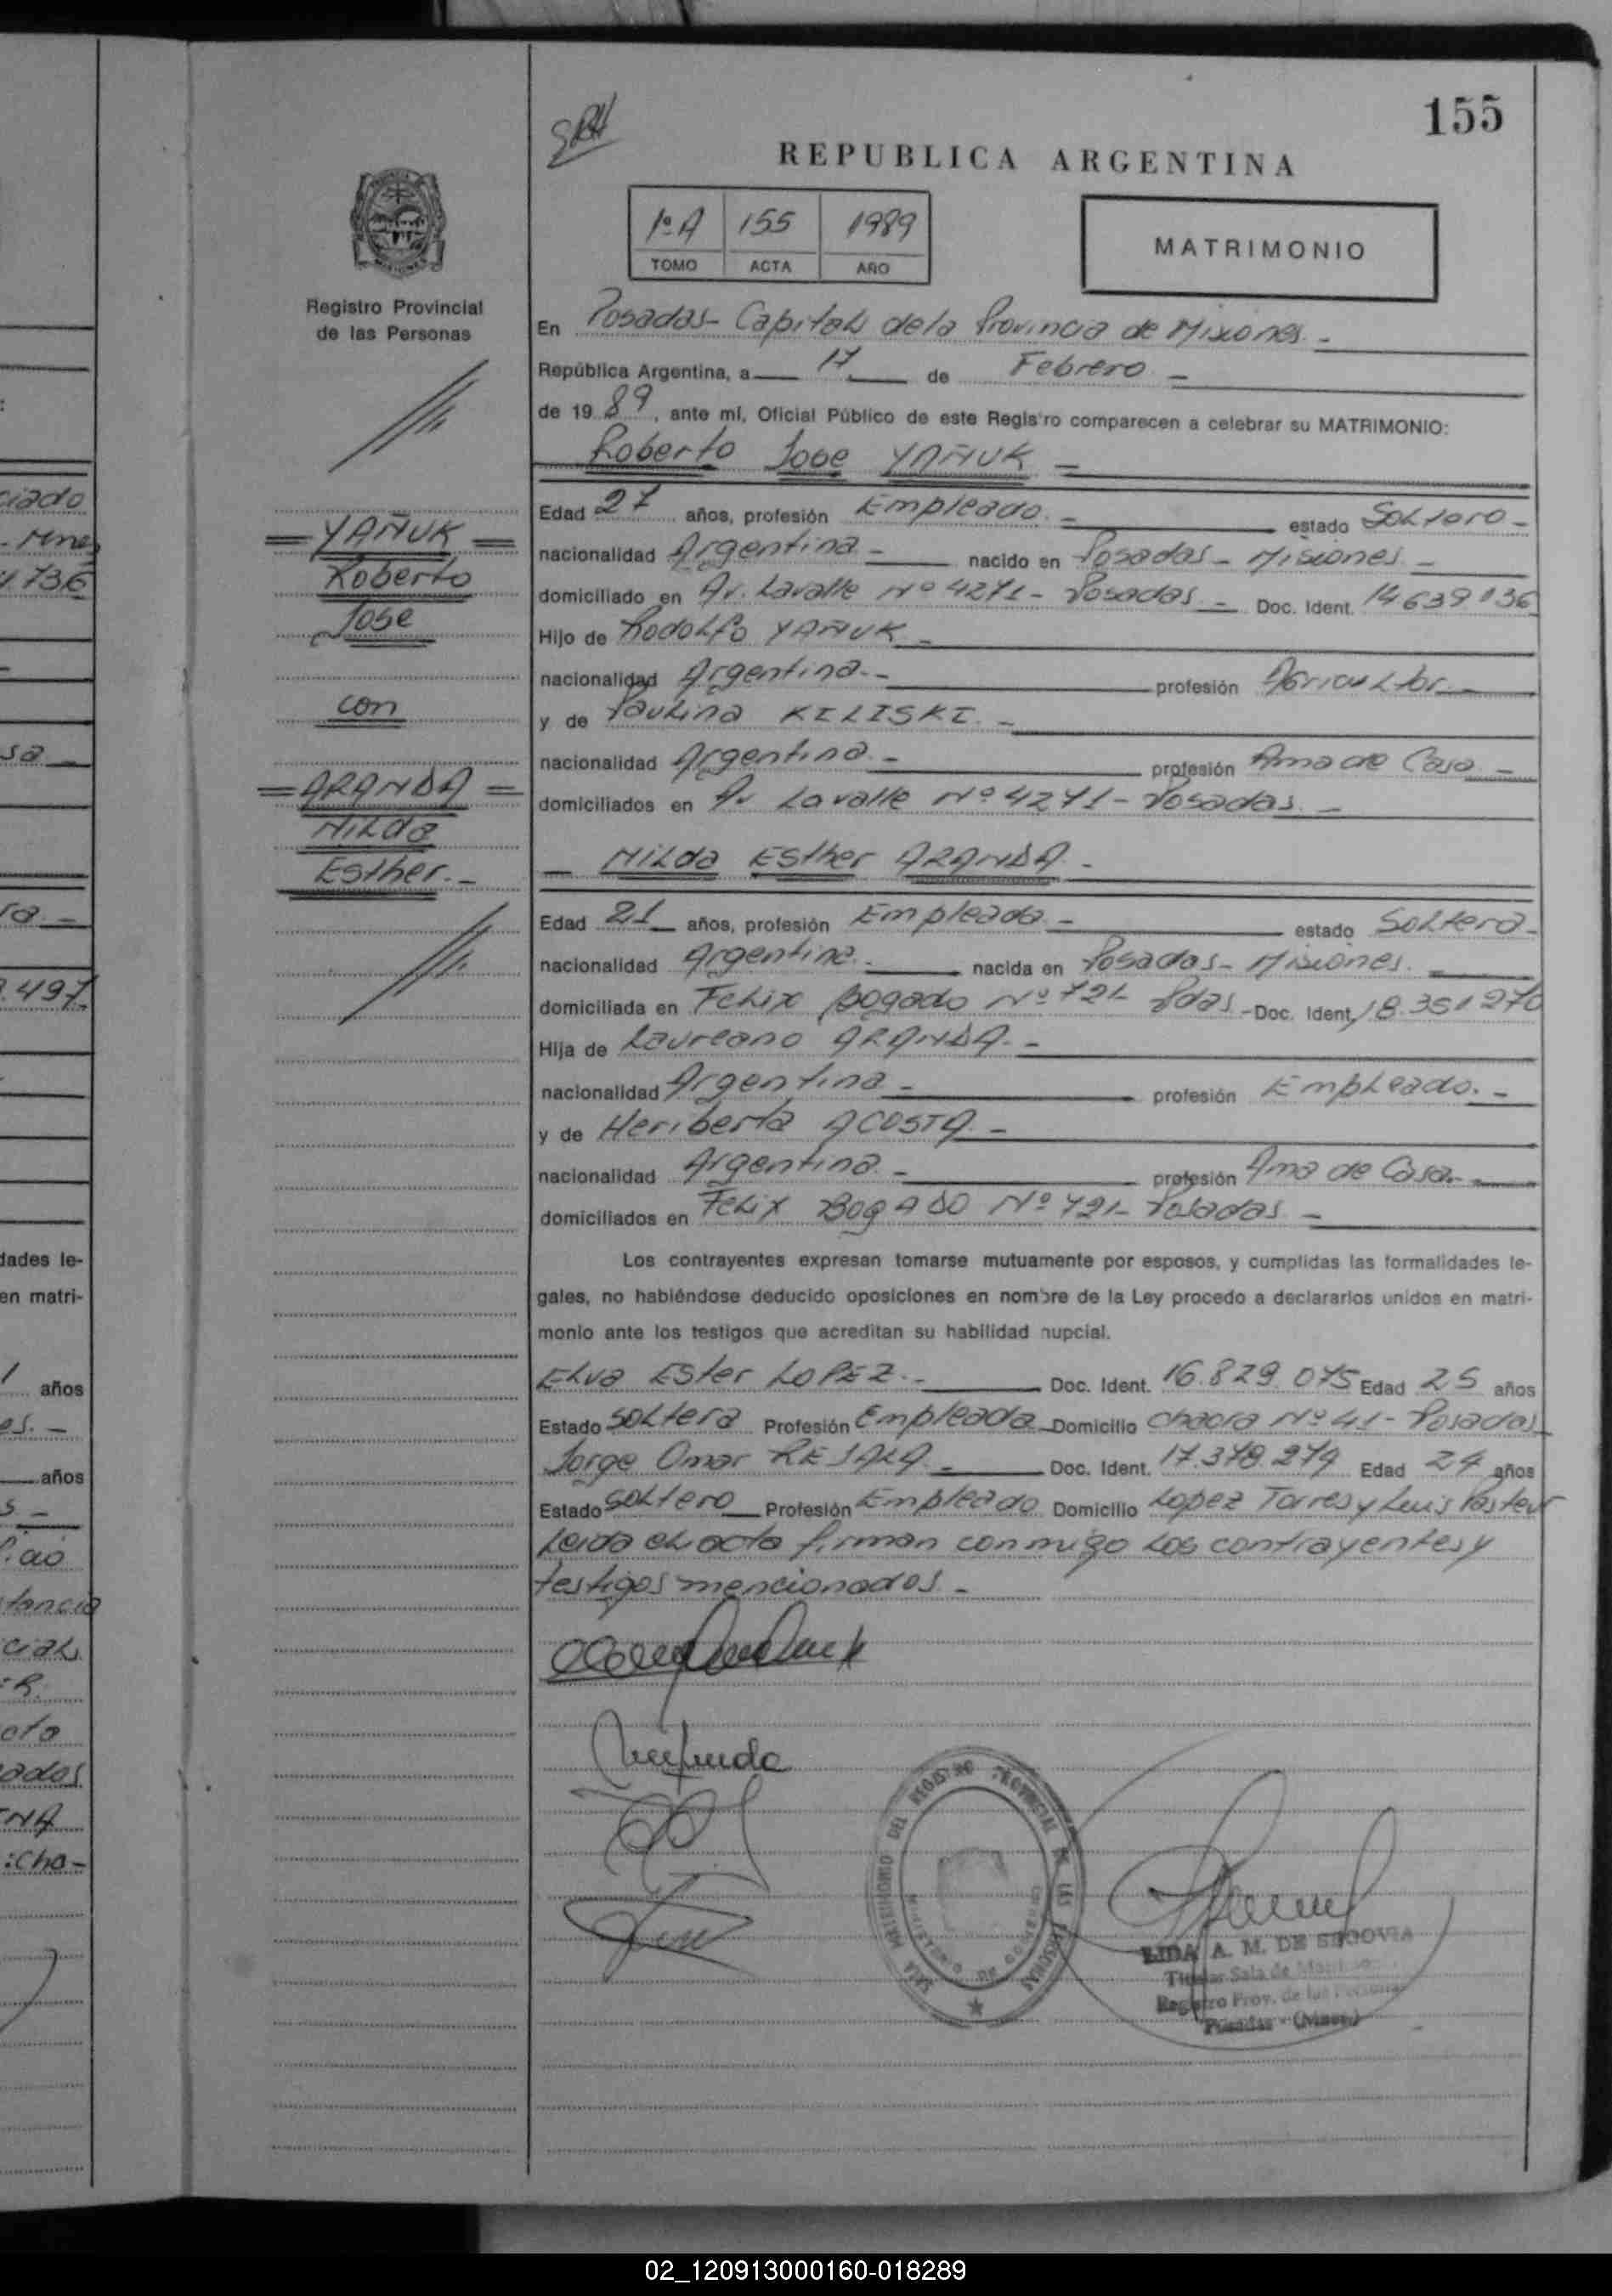 155
REPUBLICA ARGENTINA
1º A 155 1989
TOMO ACTA AÑO
MATRIMONIO
Registro Provincial
de las Personas
En Posadas - Capital de la Provincia de Misiones. -
República Argentina, a 17 de Febrero -
de 19 89, ante mí, Oficial Público de este Registro comparecen a celebrar su MATRIMONIO:
Roberto Jose YAÑUK =
Edad 27 años, profesión Empleado. - estado Soltero -
nacionalidad Argentina - nacido en Posadas - Misiones -
domiciliado en Av. Lavalle Nº 4271 - Posadas - Doc. Ident. 14639036
Hijo de Rodolfo YAÑUK -
nacionalidad Argentina. - profesión Agricultor. -
y de Paulina KILISKI. -
nacionalidad Argentina. - profesión Ama de Casa -
domiciliados en Av Lavalle Nº 4271 - Posadas. -
- Nilda Esther ARANDA. -
Edad 21 años, profesión Empleada - estado Soltera -
nacionalidad Argentina. - nacida en Posadas - Misiones. -
domiciliada en Felix Bogado Nº 721 - Pdas - Doc. Ident. 18.351270
Hija de Laureano ARANDA. -
nacionalidad Argentina - profesión Empleado. -
y de Heriberta ACOSTA -
nacionalidad Argentina - profesión Ama de Casa. -
domiciliados en Felix BogADO Nº 721 - Posadas -
= YAÑUK =
Roberto
Jose
con
= ARANDA =
Nilda
Esther. -
Los contrayentes expresan tomarse mutuamente por esposos, y cumplidas las formalidades le-
gales, no habiéndose deducido oposiciones en nombre de la Ley procedo a declararlos unidos en matri-
monio ante los testigos que acreditan su habilidad nupcial.
Elva Ester LOPEZ. - Doc. Ident. 16.829.075 Edad 25 años
Estado Soltera Profesión Empleada Domicilio Chacra Nº 41 - Posadas
Jorge Omar RESALA - Doc. Ident. 17.378.279 Edad 24 años
Estado Soltero Profesión Empleado Domicilio Lopez Torres y Luis Pasteur
Leida el acta firman conmigo los contrayentes y
testigos mencionados. -
SALA MATRIMONIO DEL REGISTRO PROVINCIAL DE LAS PERSONAS
MINISTERIO DE GOBIERNO
LIDA A. M. DE SEGOVIA
Titular Sala de
Registro Prov. de las Personas
Posadas - (Mnes.)
ciado
- Mnes
.736
sa -
ra. -
.497
dades le-
en matri-
1 años
es. -
años
tancia
cial
ados
NA
02_120913000160-018289